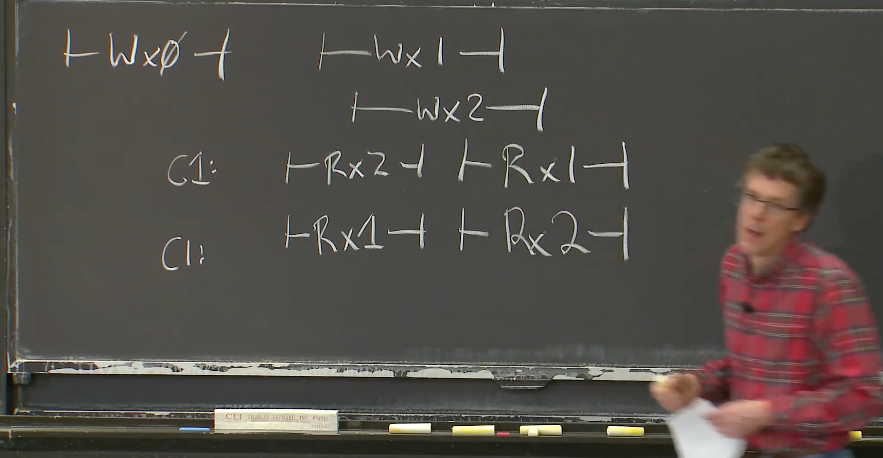 ⊢Wx0⊣ ⊢Wx1⊣
⊢Wx2⊣
C1: ⊢Rx2⊣ ⊢Rx1⊣
C1: ⊢Rx1⊣ ⊢Rx2⊣